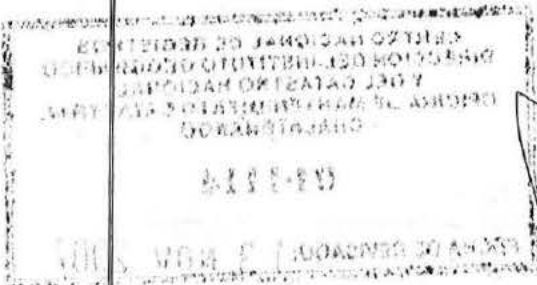 CENTRO NACIONAL DE REGISTROS
DIRECCION DEL INSTITUTO GEOGRAFICO
Y DEL CATASTRO NACIONAL
OFICINA DE MANTENIMIENTO CATASTRAL
CHALATENANGO
FECHA DE REVISADO: NOV